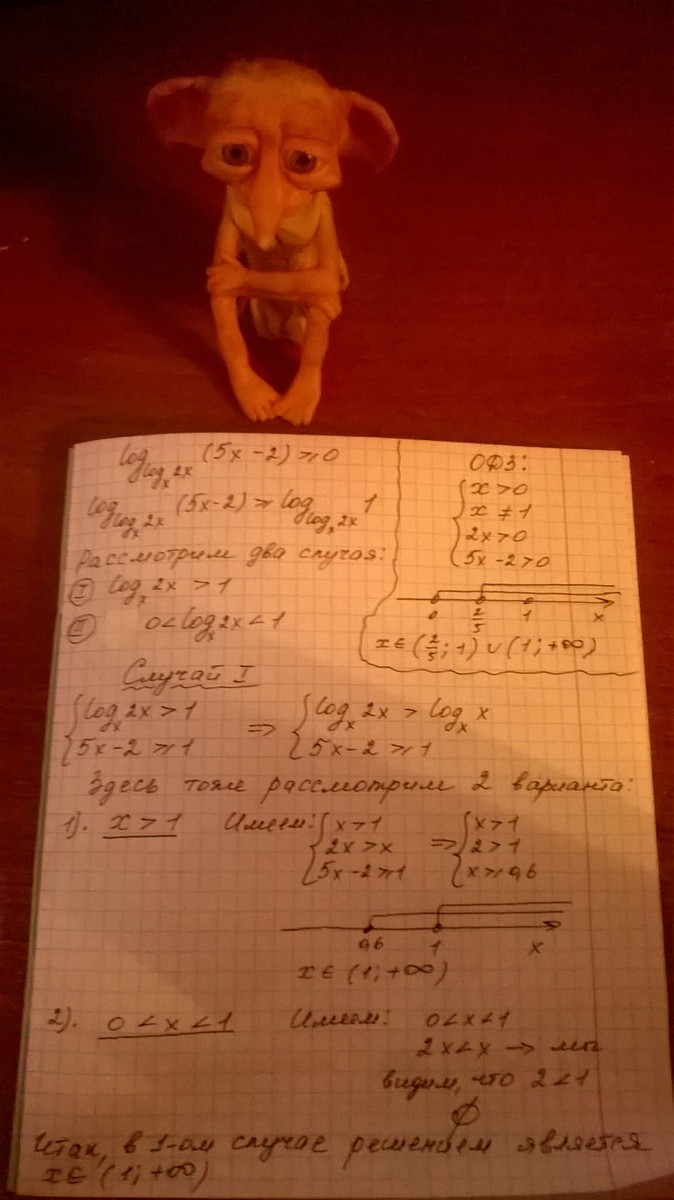 log_{log_x 2x} (5x-2) ⩾ 0
log_{log_x 2x} (5x-2) ⩾ log_{log_x 2x} 1
Рассмотрим два случая:
Ⓘ log_x 2x > 1
Ⓘ︎Ⓘ 0 < log_x 2x < 1
ОДЗ:
{ x > 0
x ≠ 1
2x > 0
5x - 2 > 0
0 2/5 1 x
x ∈ (2/5; 1) ∪ (1; +∞)
Случай I
{ log_x 2x > 1 ⇒ { log_x 2x > log_x x
5x - 2 ⩾ 1 5x - 2 ⩾ 1
Здесь тоже рассмотрим 2 варианта:
1). x > 1 Имеем: { x > 1 ⇒ { x > 1
2x > x 2 > 1
5x - 2 ⩾ 1 x ⩾ 0,6
0,6 1 x
x ∈ (1; +∞)
2). 0 < x < 1 Имеем: 0 < x < 1
2x < x → мы
видим, что 2 < 1
∅
Итак, в 1-ом случае решением является
x ∈ (1; +∞)